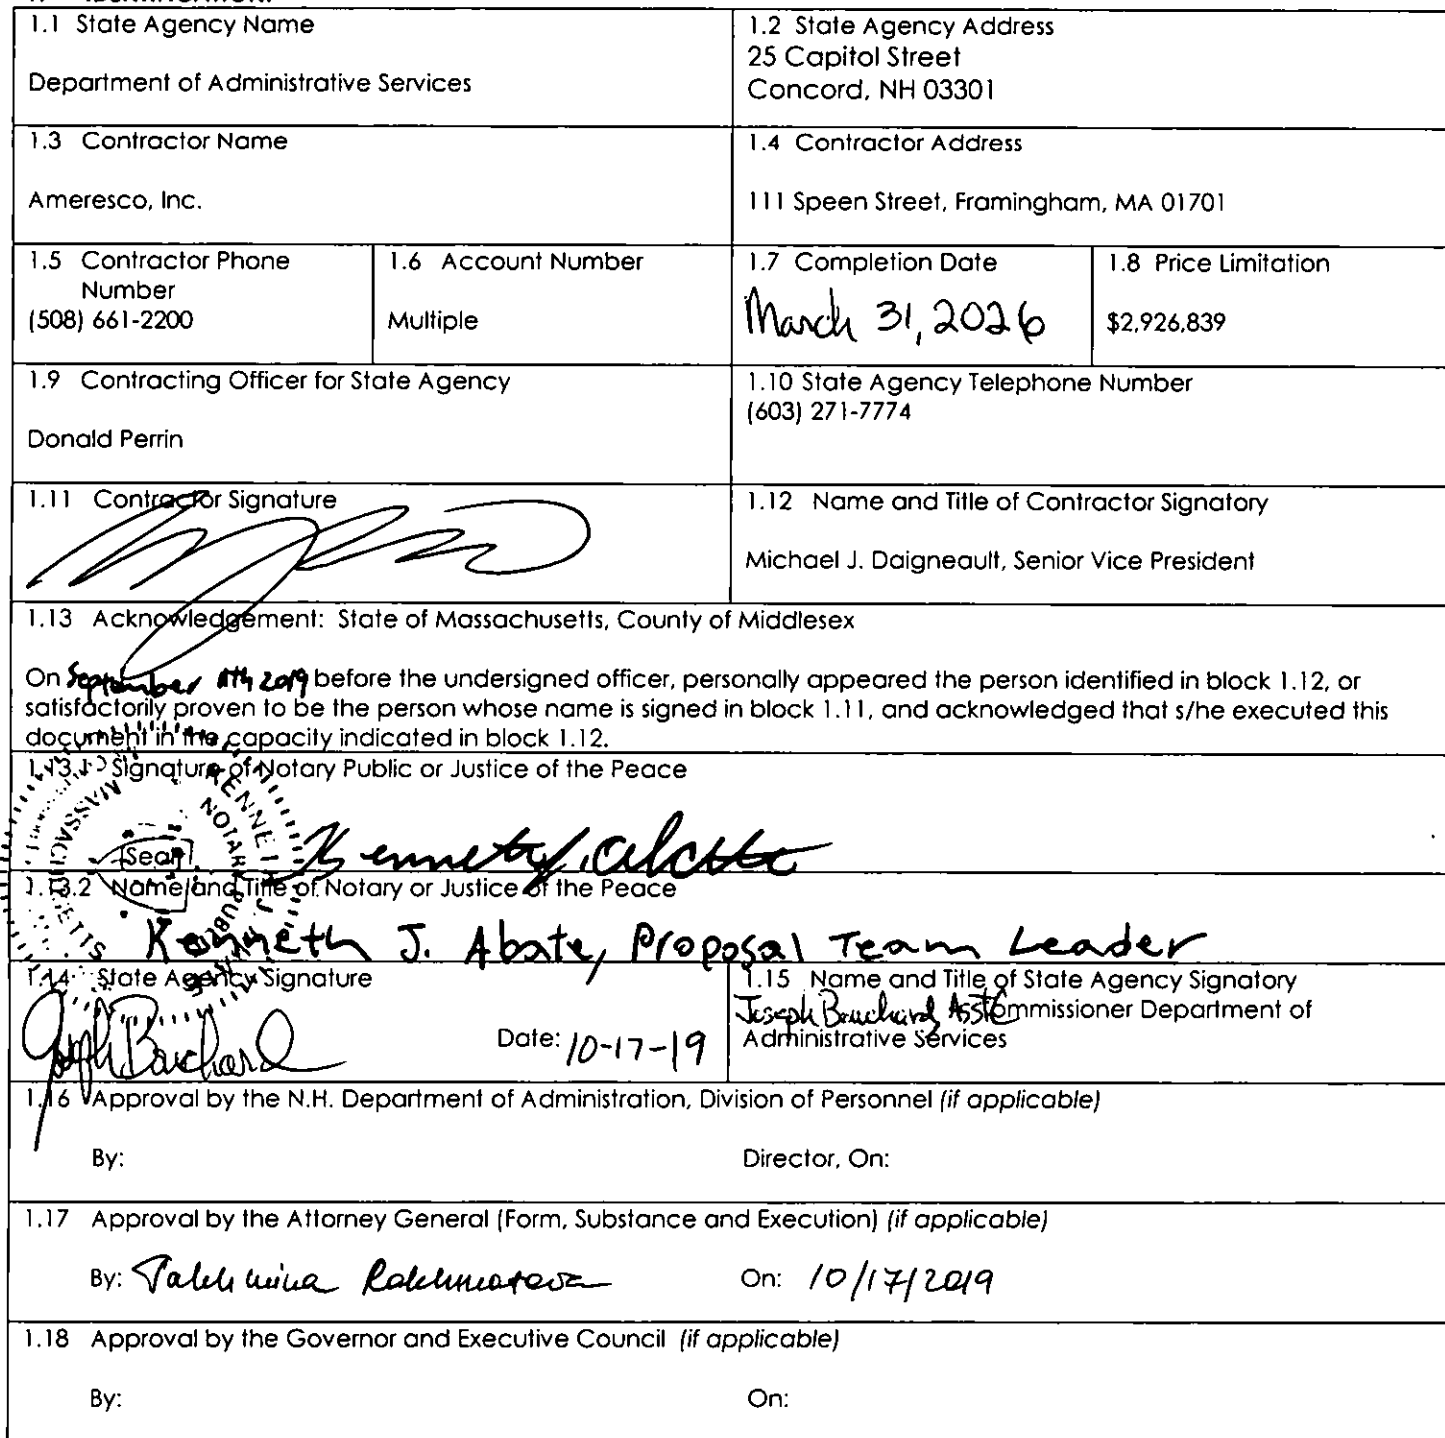 1.1 State Agency Name
Department of Administrative Services
1.2 State Agency Address
25 Capitol Street
Concord, NH 03301
1.3 Contractor Name
Ameresco, Inc.
1.4 Contractor Address
111 Speen Street, Framingham, MA 01701
1.5 Contractor Phone
Number
(508) 661-2200
1.6 Account Number
Multiple
1.7 Completion Date
March 31, 2026
1.8 Price Limitation
$2,926,839
1.9 Contracting Officer for State Agency
Donald Perrin
1.10 State Agency Telephone Number
(603) 271-7774
1.11 Contractor Signature
1.12 Name and Title of Contractor Signatory
Michael J. Daigneault, Senior Vice President
1.13 Acknowledgement: State of Massachusetts, County of Middlesex
On September 2019 before the undersigned officer, personally appeared the person identified in block 1.12, or
satisfactorily proven to be the person whose name is signed in block 1.11, and acknowledged that s/he executed this
document in the capacity indicated in block 1.12.
1.13.1 Signature of Notary Public or Justice of the Peace
[Seal]
1.13.2 Name and Title of Notary or Justice of the Peace
Kenneth J. Abate, Proposal Team Leader
1.14 State Agency Signature
Joseph Bouchard
Date: 10-17-19
1.15 Name and Title of State Agency Signatory
Joseph Bouchard Asst Commissioner Department of
Administrative Services
1.16 Approval by the N.H. Department of Administration, Division of Personnel (if applicable)
By:
Director, On:
1.17 Approval by the Attorney General (Form, Substance and Execution) (if applicable)
By: Takhmina Rakhmatova
On: 10/17/2019
1.18 Approval by the Governor and Executive Council (if applicable)
By:
On: